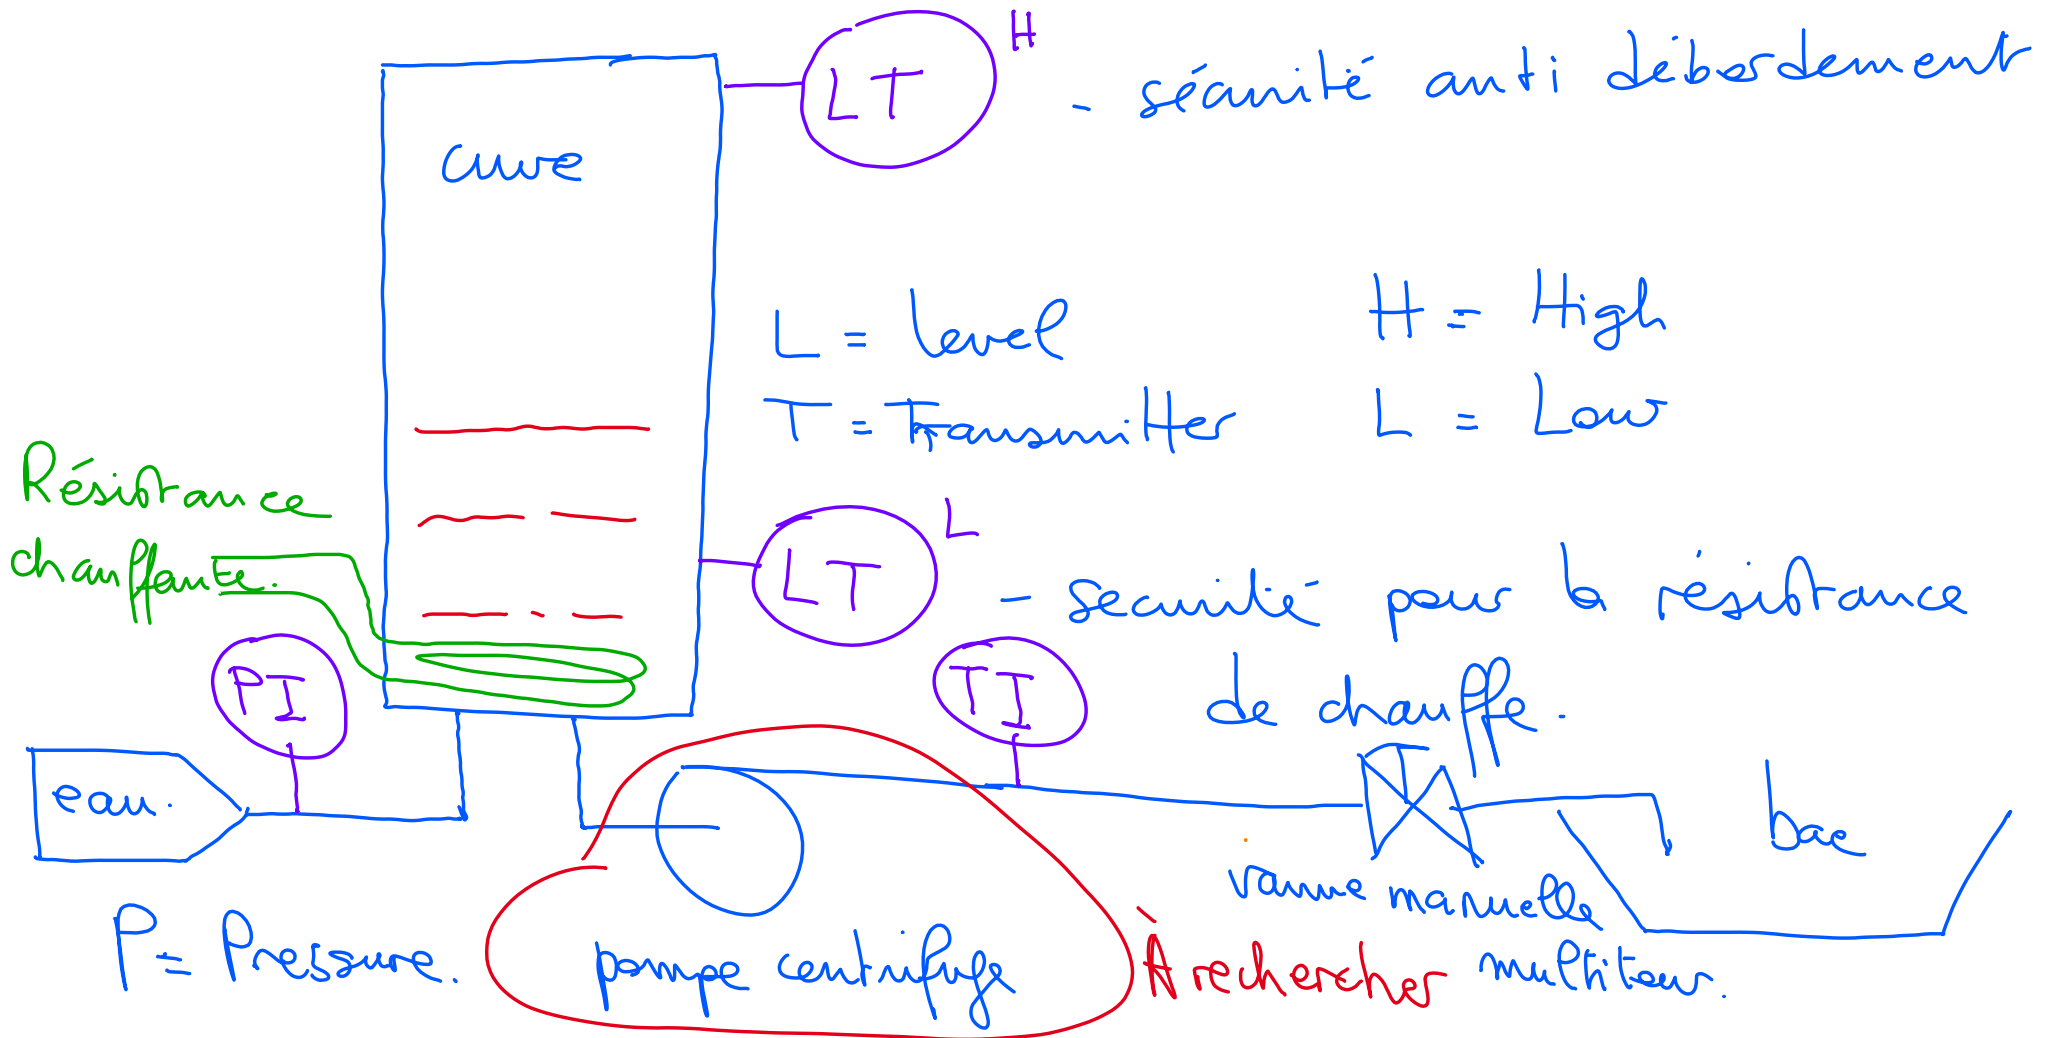 LT H
- sécurité anti débordement
cuve
L = Level
H = High
T = Transmitter
L = Low
Résistance
chauffante.
LT L
- securité pour la résistance
de chauffe.
PI
TI
eau.
bac
vanne manuelle
P = Pressure.
pompe centrifuge
À rechercher
multitour.